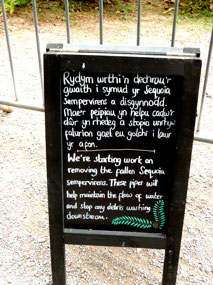 Rydym wrthi'n dechrau'r
gwaith i symud yr Sequoia
Sempervirens a disgynnodd.
Maer peipiau yn helpu cadw'r
dŵr yn rhedeg a stopio unrhyw
falurion gael eu golchi i lawr
yr afon.
We're starting work on
removing the fallen Sequoia
sempervirens. These pipes will
help maintain the flow of water
and stop any debris washing
downstream.